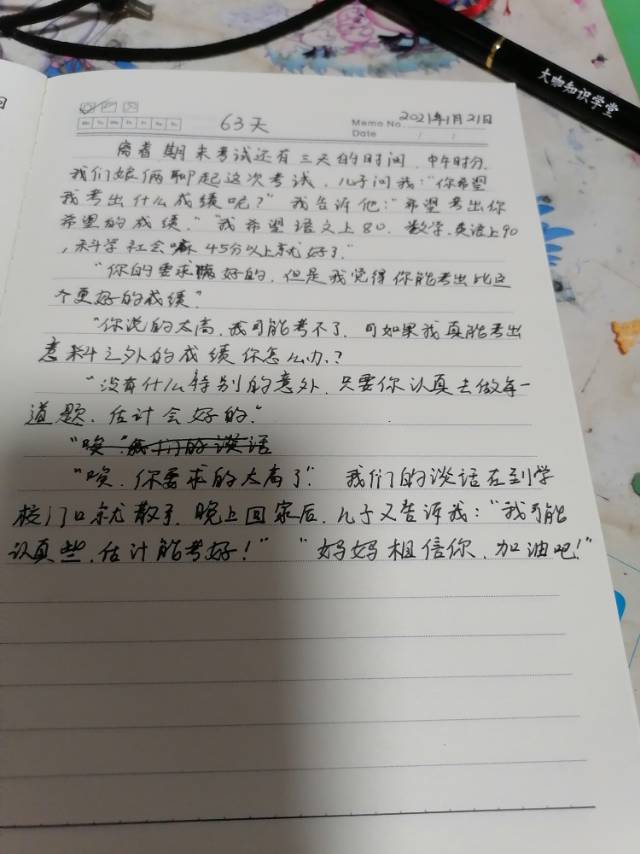 大咖知识学堂
63天
Memo No. 2021年1月21日
Date / /
离考期末考试还有三天的时间,中午时分,
我们娘俩聊起这次考试,儿子问我:"你希望
我考出什么成绩呢?" 我告诉他:"希望考出你
希望的成绩。""我希望语文上80,数学、英语上90
,科学社会 45分以上就好了."
"你的要求 好的,但是我觉得你能考出比这
个更好的成绩"
"你说的太高,我可能考不了,可如果我真能考出
意料之外的成绩你怎么办.?
"没有什么特别的意外,只要你认真去做每一
道题,估计会好的."
"唉 我们的谈话
"唉,你要求的太高了". 我们的谈话在到学
校门口就散了,晚上回家后,儿子又告诉我:"我可能
认真些,估计能考好!" "妈妈相信你,加油吧!"